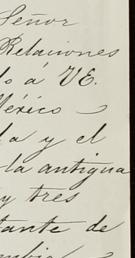 Señor
Relaciones
lo á VE.
México
la y el
la antigua
y tres
tante de